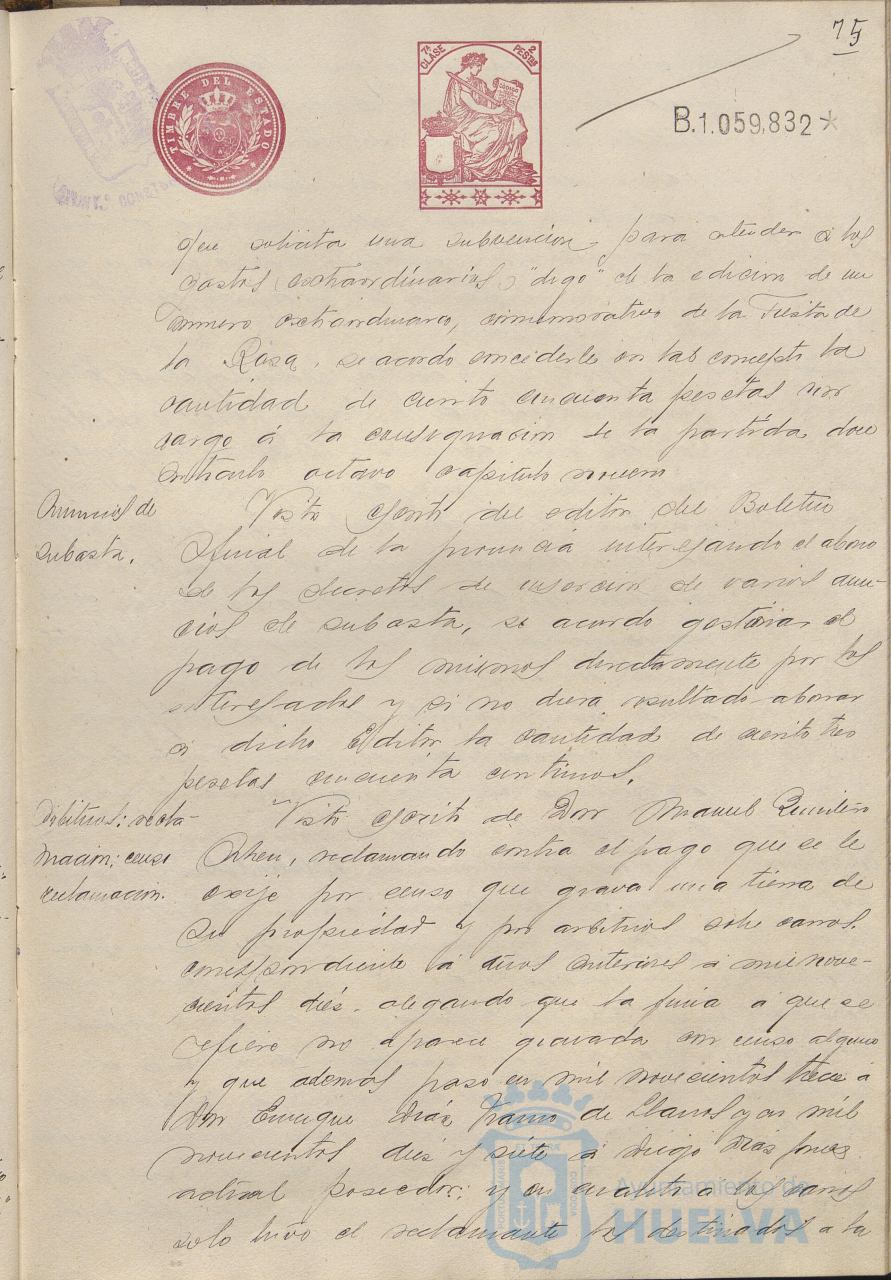 75
TIMBRE DEL ESTADO
7ª CLASE 2 PESTAS
B.1.059,832*
que solicita una subvencion, para atender á los
gastos extraordinarios, "digo" de la edicion de un
número extraordinario, conmemorativo de la Fiesta de
la Raza, se acordó concederle en tal concepto la
cantidad de ciento cincuenta pesetas con
cargo á la consignacion de la partida doce
articulo octavo capitulo noveno
Anuncios de
subasta.
Visto escrito del editor del Boletin
Oficial de la provincia interesando el abono
de los derechos de insercion de varios anun-
cios de subasta, se acordó gestionar el
pago de los mismos directamente por los
interesados y si no diera resultado abonar
á dicho Editor la cantidad de ciento tres
pesetas cincuenta centimos.
Arbitrios: recla-
macion: censo
reclamacion.
Visto escrito de Don Manuel
reclamando contra el pago que se le
exije por censo que grava una tierra de
su propiedad y por arbitrios sobre carros
correspondiente á años anteriores á mil nove-
cientos diés, alegando que la finca á que se
refiere no aparece gravada con censo alguno
y que además pasó en mil novecientos trece á
Don Enrique Diáz Franco de Llanos y en mil
novecientos diés y siete á Diego Diás
actual poseedor; y en cuanto a los carros
solo tuvo el reclamante los destinados a la
Ayuntamiento de
HUELVA